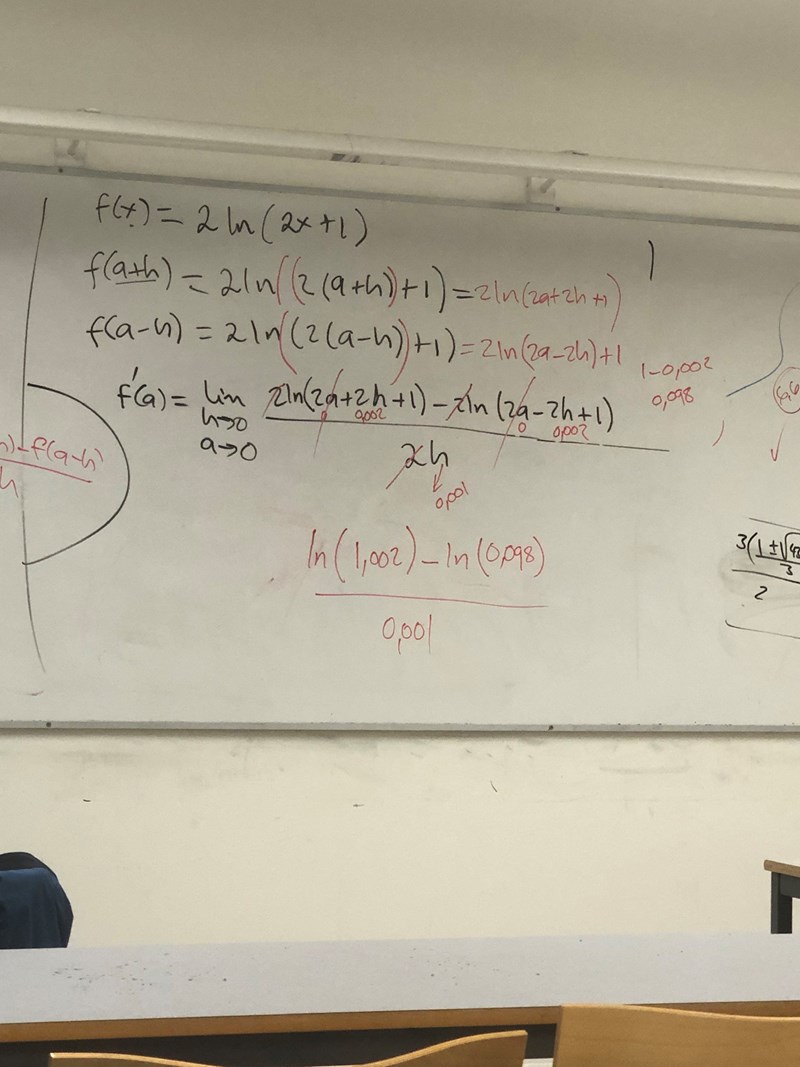 f(x) = 2 ln(2x+1)
f(a+h) = 2ln((2(a+h)+1) = 2ln(2a+2h+1)
f(a-h) = 2ln((2(a-h))+1) = 2ln(2a-2h)+1
1-0,002
0,098
f'(a) = lim 2ln(2a+2h+1) - 2ln(2a-2h+1)
h→0
a→0
0 0,002 0 0,002
2h
0,001
ln(1,002) - ln(0,098)
0,001
)-f(a-h)
h
3(1±√48
3
2